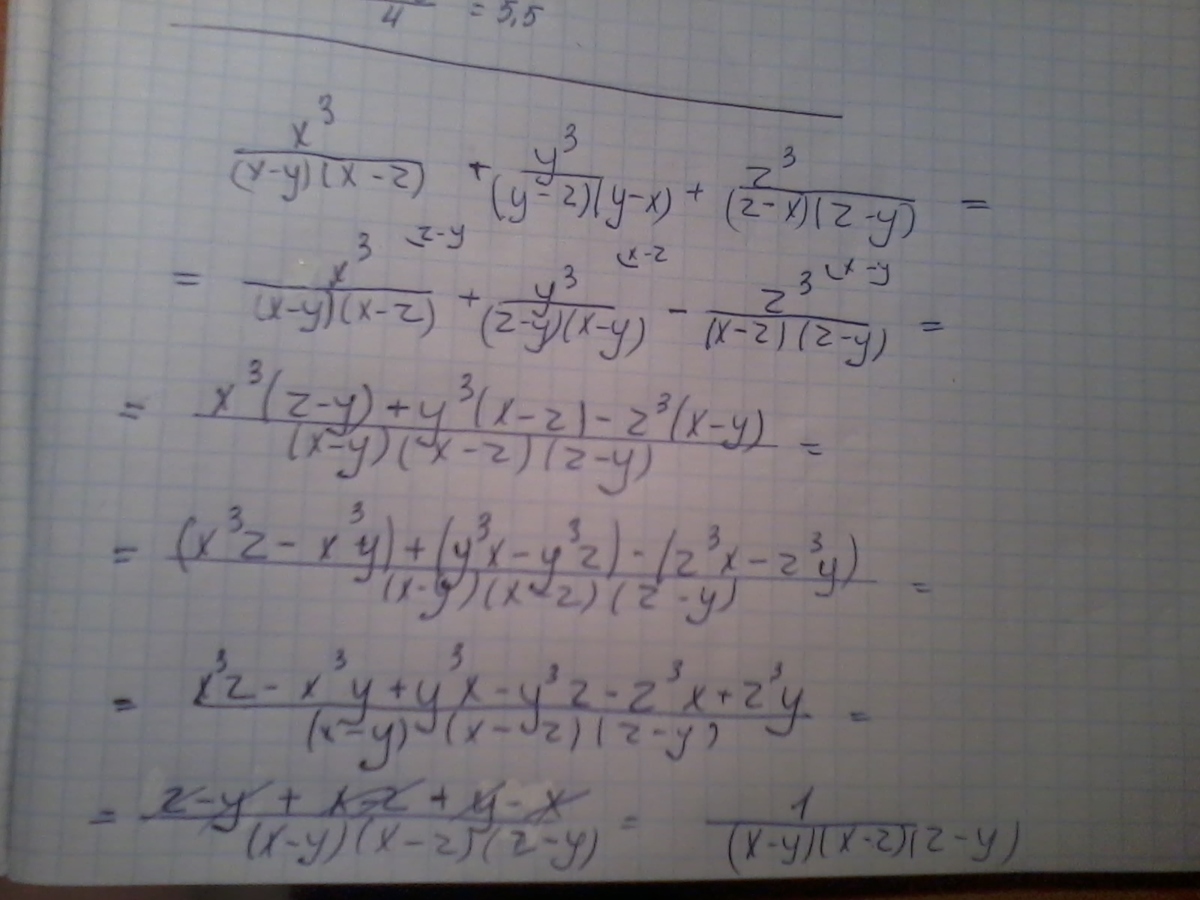 /4 = 5,5
x³/((x-y)(x-z)) + y³/((y-z)(y-x)) + z³/((z-x)(z-y)) =
= x³ (z-y/((x-y)(x-z)) + y³ (x-z/((z-y)(x-y)) - z³ (x-y/((x-z)(z-y)) =
= (x³(z-y)+y³(x-z)-z³(x-y))/((x-y)(x-z)(z-y)) =
= ((x³z - x³y)+(y³x-y³z)-(z³x-z³y))/((x-y)(x-z)(z-y)) =
= (x³z - x³y + y³x - y³z - z³x + z³y)/((x-y)(x-z)(z-y)) =
= (z-y + x-z + y-x)/((x-y)(x-z)(z-y)) = 1/((x-y)(x-z)(z-y))